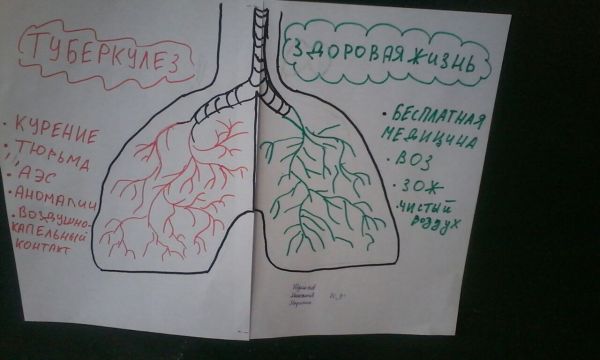 ТУБЕРКУЛЕЗ
• КУРЕНИЕ
• ТЮРЬМА
• АЭС
• АНОМАЛИИ
• ВОЗДУШНО-
КАПЕЛЬНЫЙ
КОНТАКТ
ЗДОРОВАЯ ЖИЗНЬ
• БЕСПЛАТНАЯ
МЕДИЦИНА
• ВОЗ
• ЗОЖ
• ЧИСТЫЙ
ВОЗДУХ